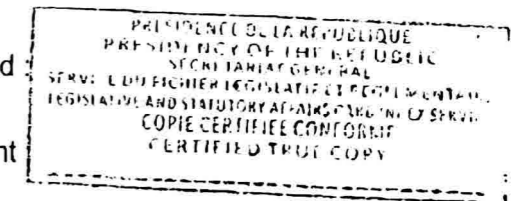 d :
PRESIDENCE DE LA REPUBLIQUE
PRESIDENCY OF THE REPUBLIC
SECRETARIAT GENERAL
SERVICE DU FICHIER LEGISLATIF ET REGLEMENTAIRE
LEGISLATIVE AND STATUTORY AFFAIRS CARD INDEX SERVICE
COPIE CERTIFIEE CONFORME
CERTIFIED TRUE COPY
nt